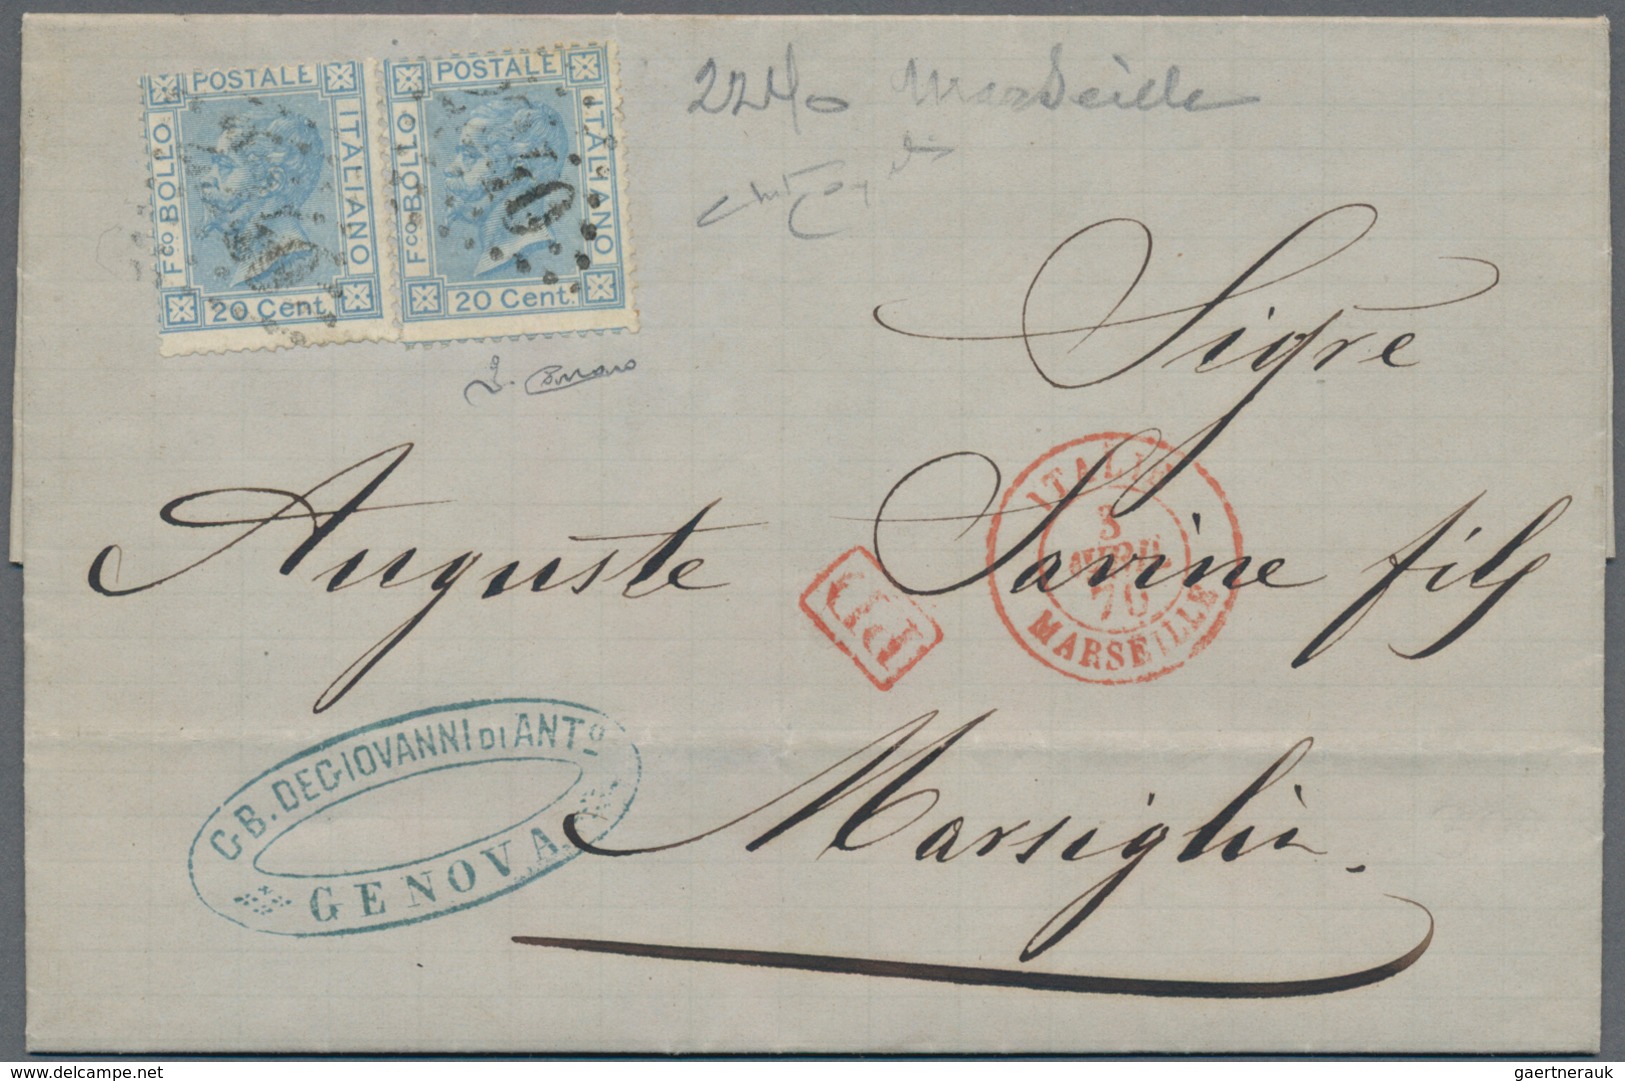 POSTALE
Fco BOLLO
ITALIANO
20 Cent.
POSTALE
Fco BOLLO
ITALIANO
20 Cent.
2240 Marseille
Sigre
Auguste Savine fils
Marsiglia
ITALIE
3
AVRIL
70
MARSEILLE
PD
G.B. DEGIOVANNI DI ANTO
GENOVA
delcampe.net
gaertnerauk